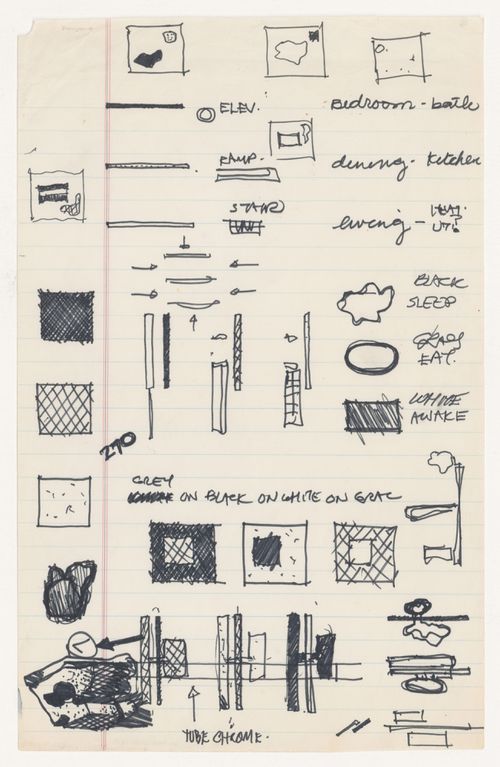 ELEV.
Bedroom - bath
RAMP.
dining - kitchen
STAIR
living -
BLACK
SLEEP
EAT.
WHITE
AWAKE
270
GREY
ON BLACK ON WHITE ON GRAY
TUBE CHROME.